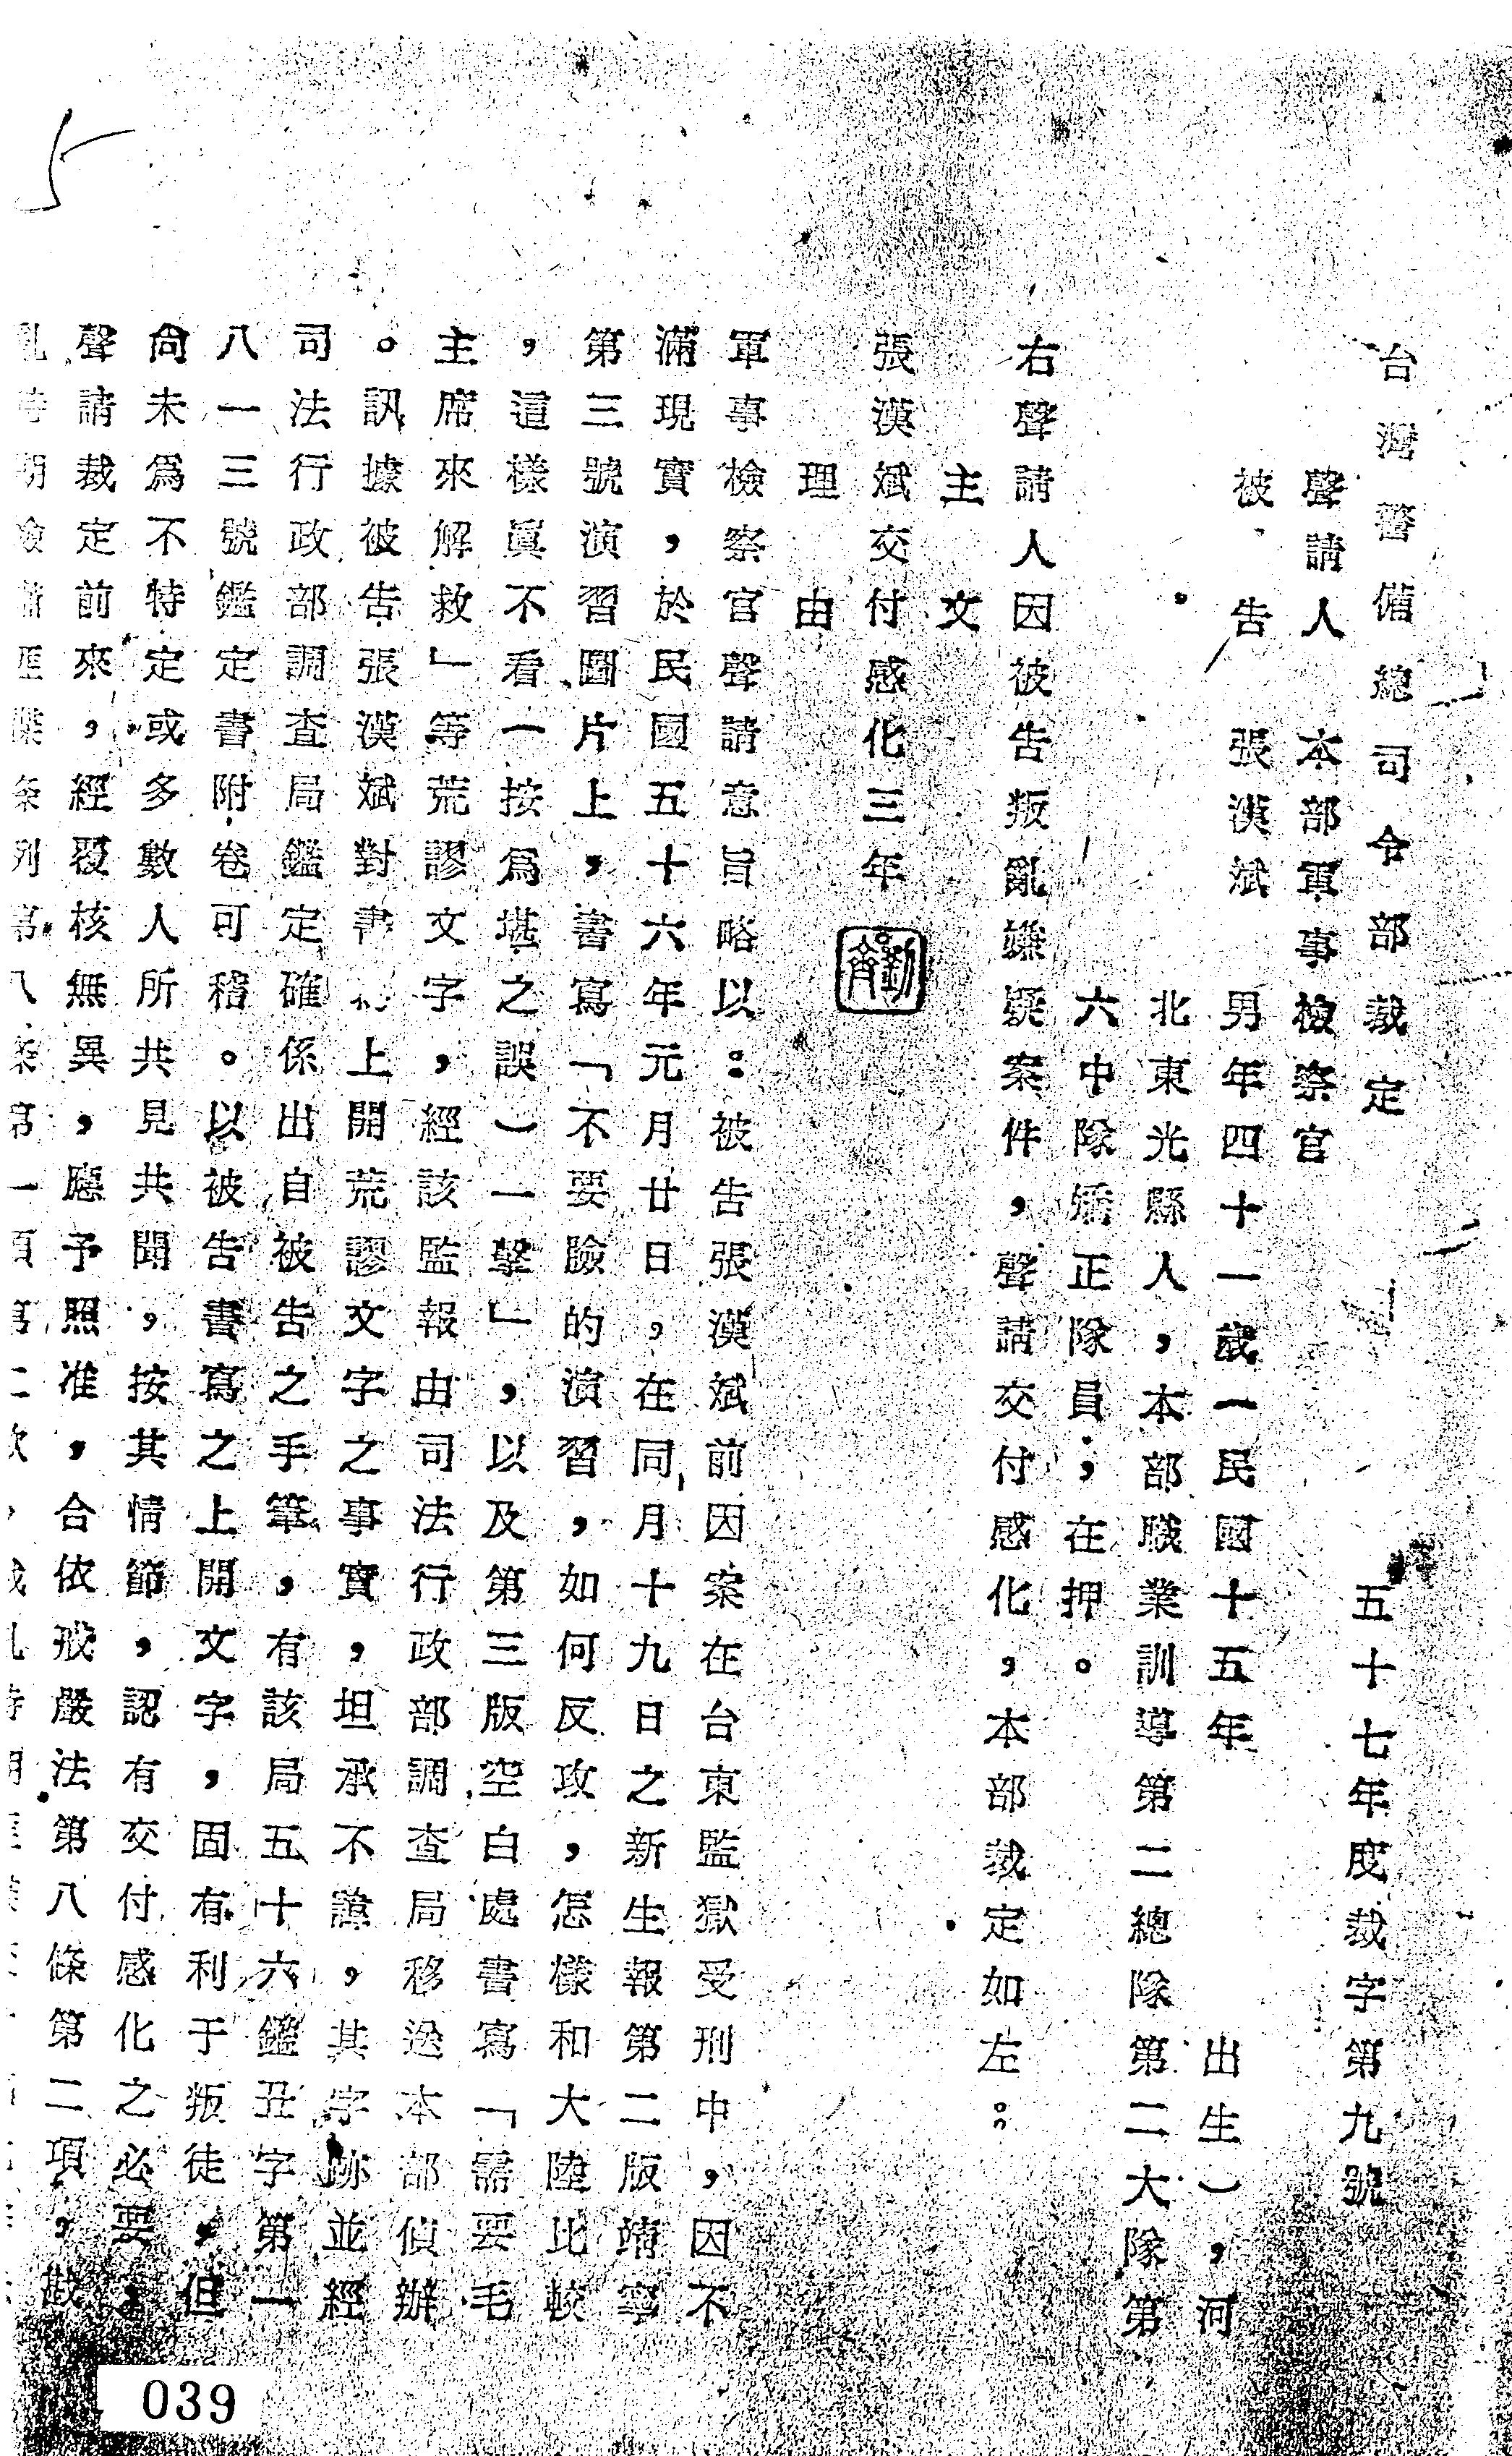 台灣警備總司令部裁定　五十七年度裁字第九號
聲請人　本部軍事檢察官
被告　張漢斌　男年四十一歲一民國十五年出生），河
北東光縣人，本部職業訓導第二總隊第二大隊第
六中隊矯正隊員；在押。
右聲請人因被告叛亂嫌疑案件，聲請交付感化，本部裁定如左：
主文
張漢斌交付感化三年
理由
軍事檢察官聲請意旨略以：被告張漢斌前因案在台東監獄受刑中，因不
滿現實，於民國五十六年元月廿日，在同月十九日之新生報第二版靖寧
第三號演習圖片上，書寫「不要臉的演習，如何反攻，怎樣和大陸比較
，這樣眞不看一按爲堪之誤）一擊」，以及第三版空白處書寫「需要毛
主席來解救」等荒謬文字，經該監報由司法行政部調查局移送本部偵辦
。訊據被告張漢斌對書 上開荒謬文字之事實，坦承不諱，其字跡並經
司法行政部調查局鑑定確係出自被告之手筆，有該局五十六鑑丑字第一
八一三號鑑定書附卷可稽。以被告書寫之上開文字，固有利于叛徒，但
尙未爲不特定或多數人所共見共聞，按其情節，認有交付感化之必要，
聲請裁定前來，經覆核無異，應予照准，合依戒嚴法第八條第二項，
039